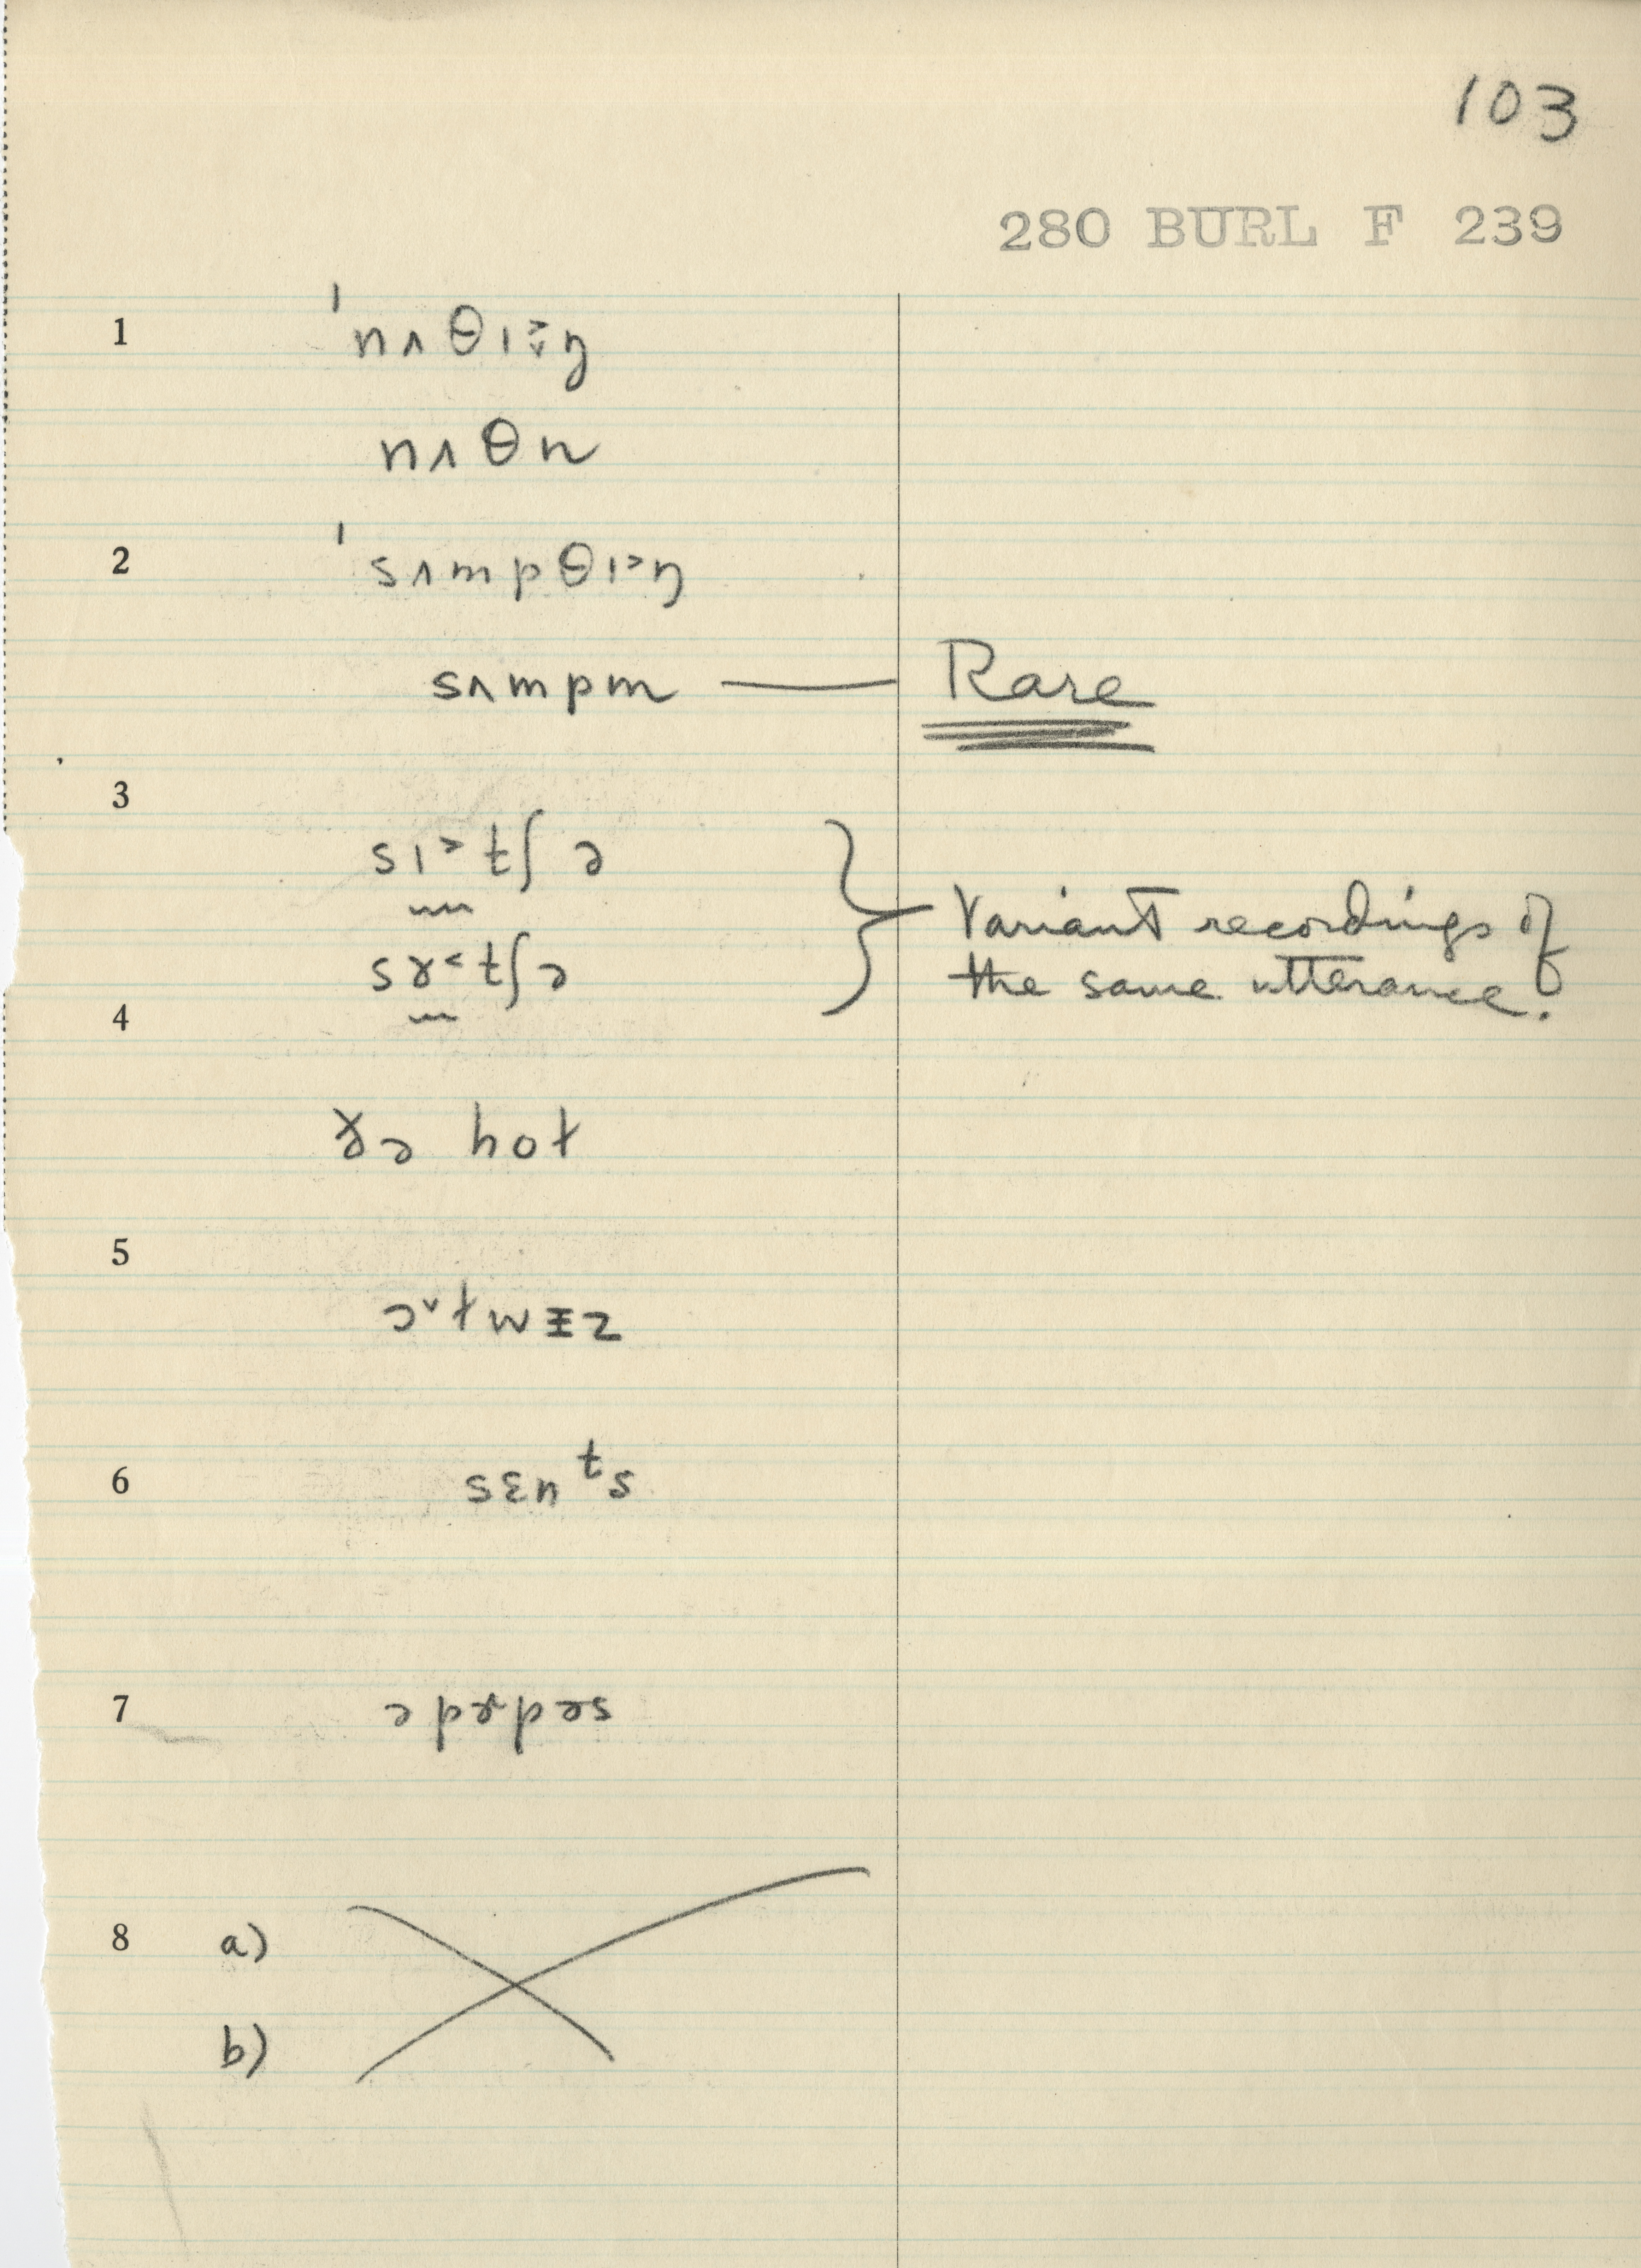 103
280 BURL F 239
1 ˈnʌθɪ˃̬ŋ
nʌθn
2 ˈsʌmpθɪ˃ŋ
sʌmpm — Rare
3 sɪ˃tʃə
sɤ˂tʃə
Variant recordings of
the same utterance.
4
hot
5 ɔˇtwɪz
6 sɛnᵗs
7 əpɚpəs
8 a)
b)